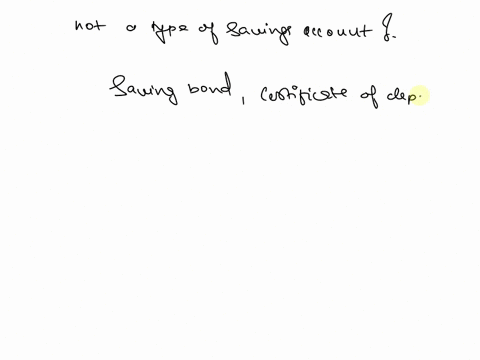 not a type of savings account ?.
Saving bond, certificate of dep.